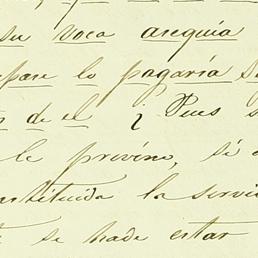 su voca arequia
epare lo pagaría S
s de el ¿ Pues s
le previne, si
nstituida la servi
se hade estar